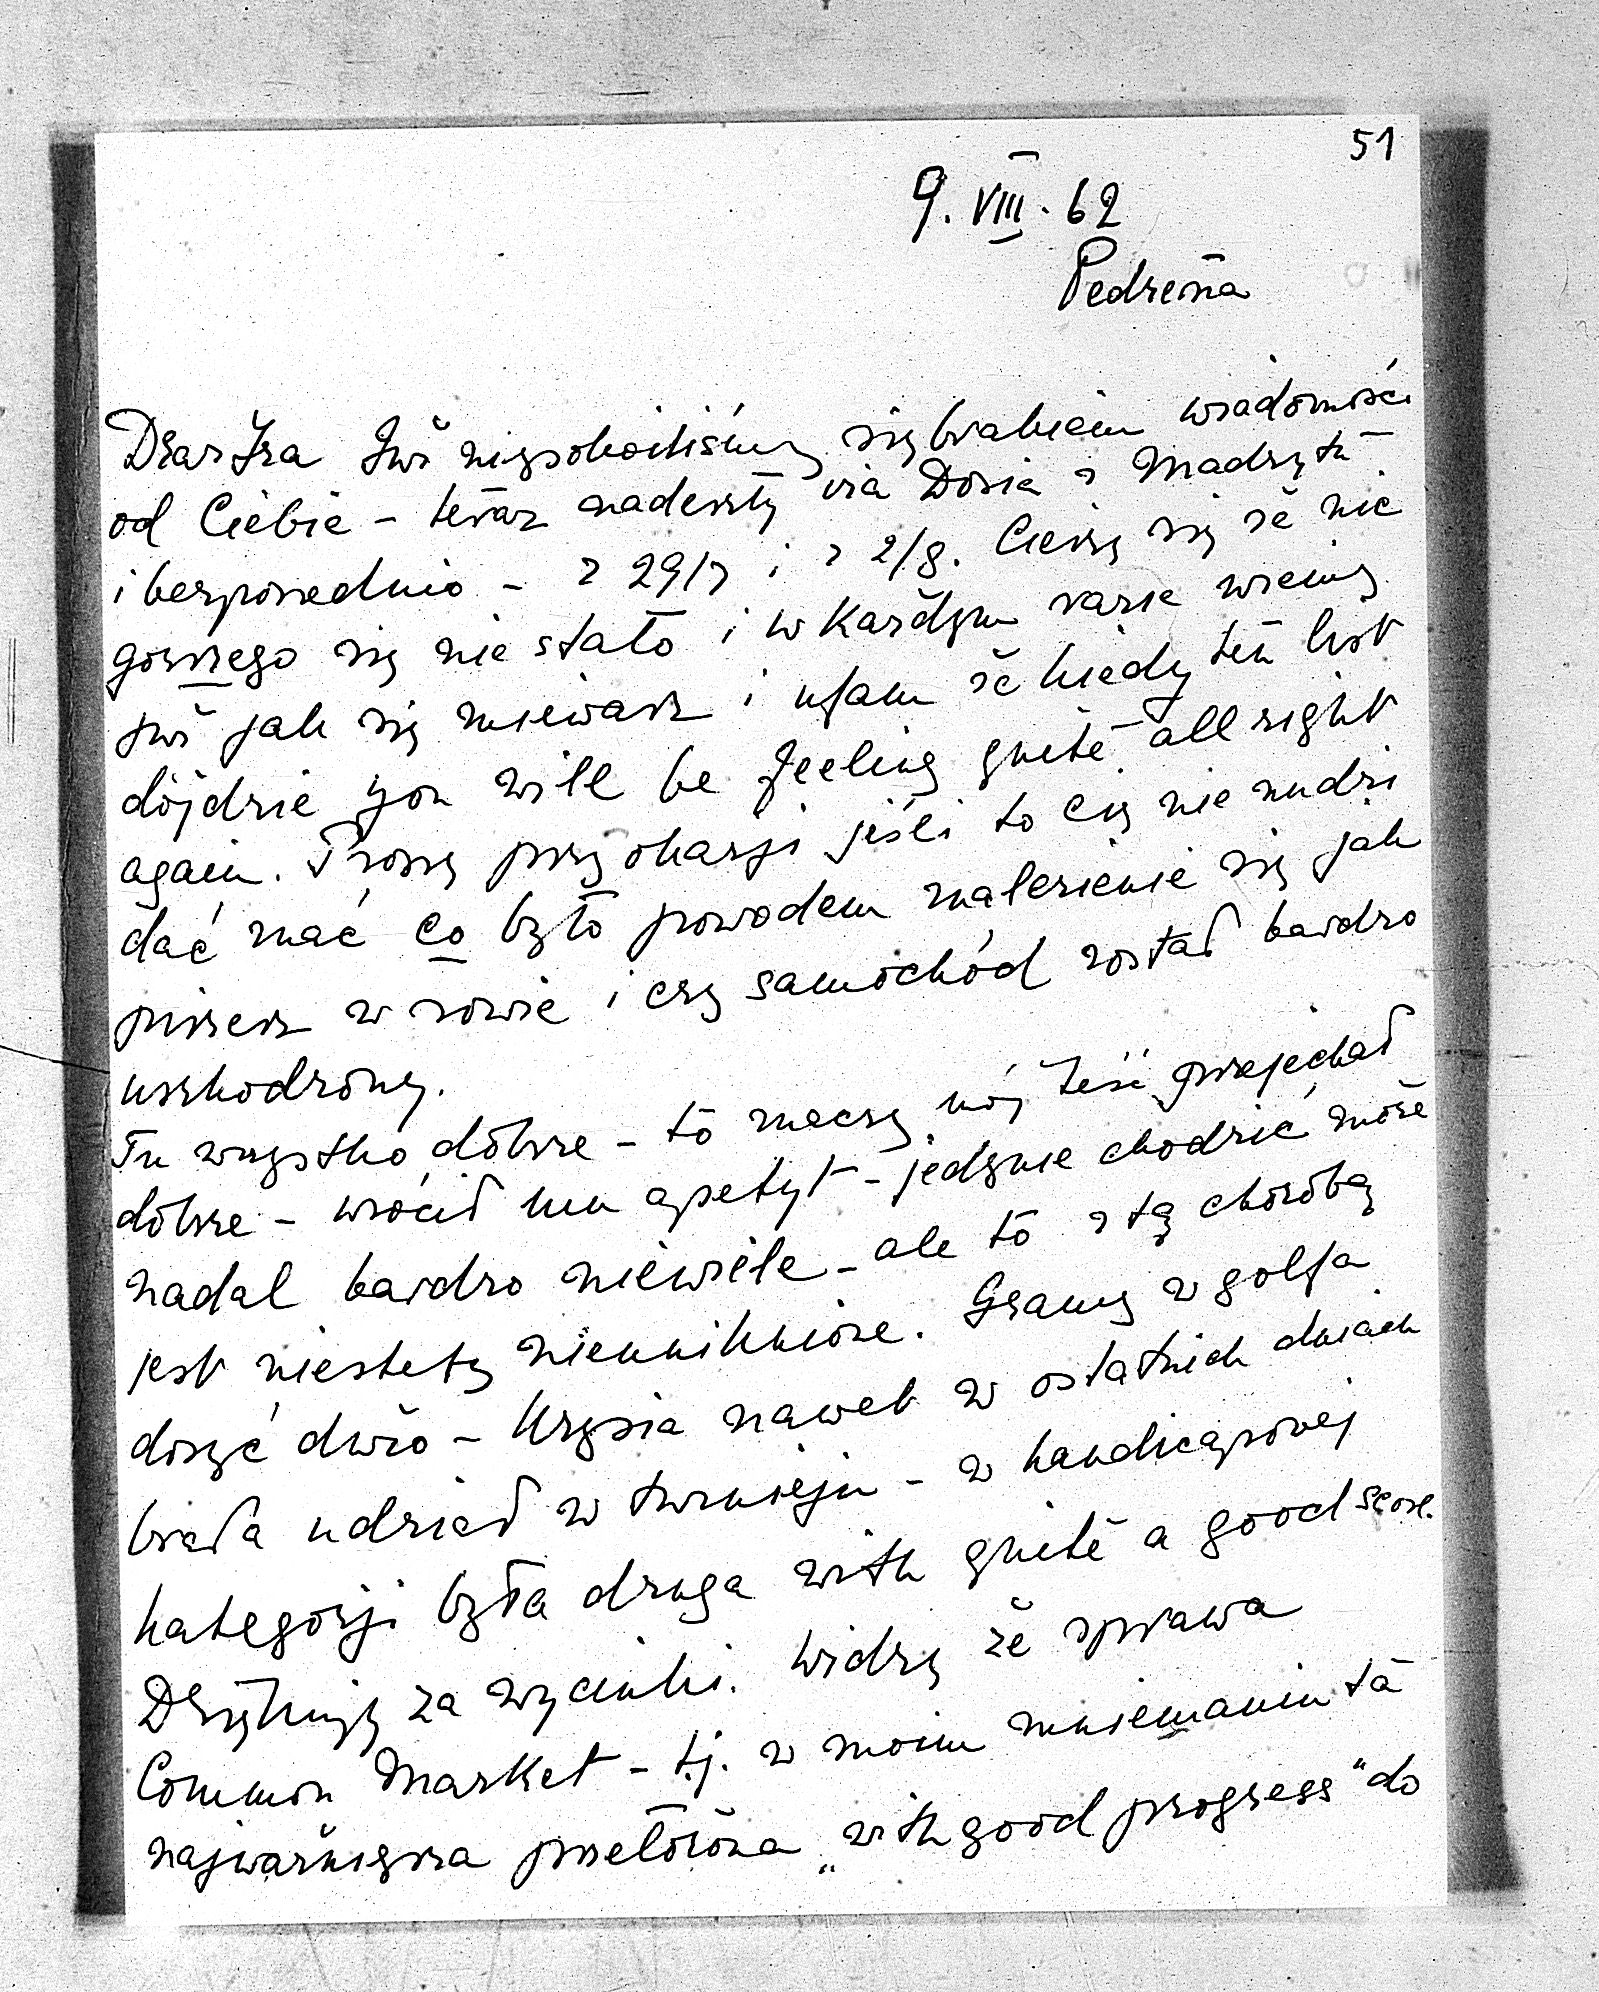 51
9. VIII. 62
Pedreña
Dear Iza Już niepokoiliśmy się brakiem wiadomości
od Ciebie – teraz nadeszły via Dosia z Madrytu
i bezpośrednio – z 29/7 i z 2/8. Cieszę się że nic
gorszego się nie stało i w każdym razie wiemy
już jak się miewasz i ufam że kiedy ten list
dojdzie you will be feeling quite all right
again. Proszę przy okazji jeśli to Cię nie nudzi
dać znać co było powodem znalezienie się jak
piszesz w rowie i czy samochód został bardzo
uszkodzony.
Tu wszystko dobrze – to znaczy mój Teść przejechał
dobrze – wrócił mu apetyt – jedynie chodzić może
nadal bardzo niewiele – ale to z tą chorobą
jest niestety nieuniknione. Gramy w golfa
dosyć dużo – Krysia nawet w ostatnich dniach
brała udział w turnieju – w handicapowej
kategorji była druga with quite a good score.
Dziękuję za wycinki. Widzę że sprawa
Common Market – t.j. w moim mniemaniu ta
najważniejsza przełożona „with good progress" do